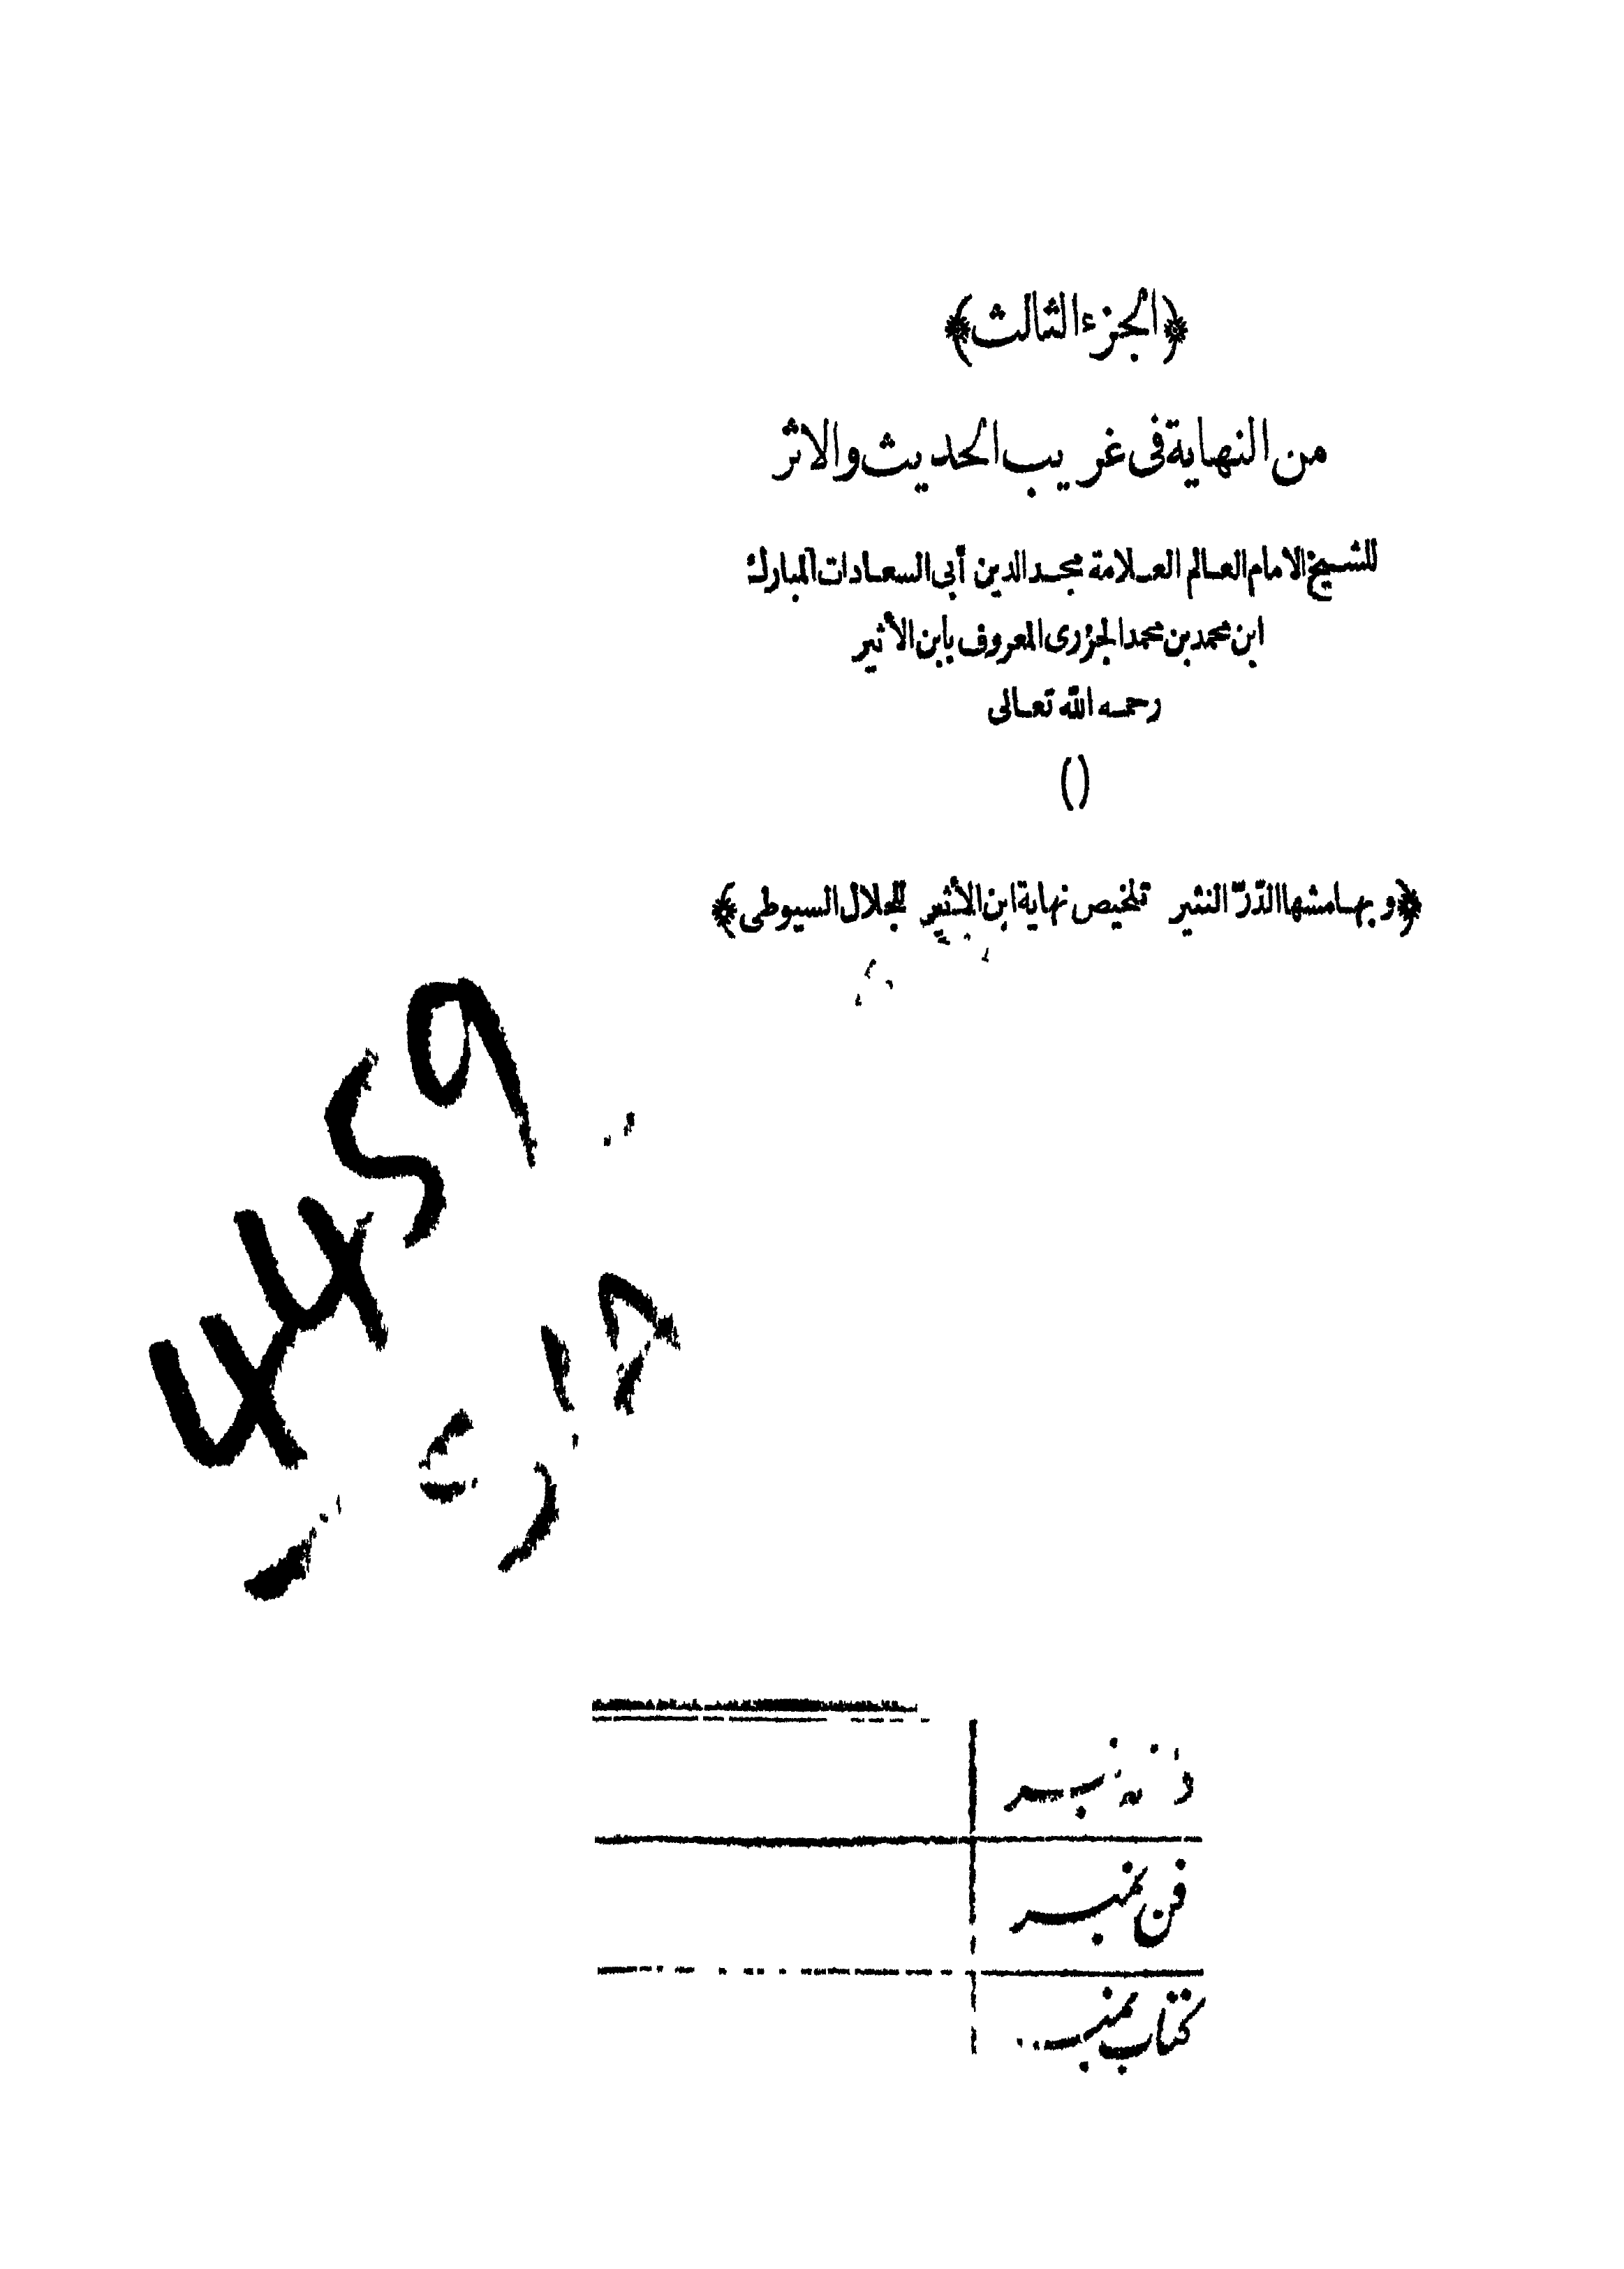 ﴿الجزء الثالث﴾
من النهاية فى غريب الحديث والاثر
للشيخ الامام العالم العلامة مجد الدين أبى السعادات المبارك
ابن محمد بن محمد الجزرى المعروف بابن الأثير
رحمه الله تعالى
()
﴿و بهامشها الدّرّ النثير تلخيص نهاية ابن الأثير للجلال السيوطى﴾
4459
فن نمبر
كتاب نمبر